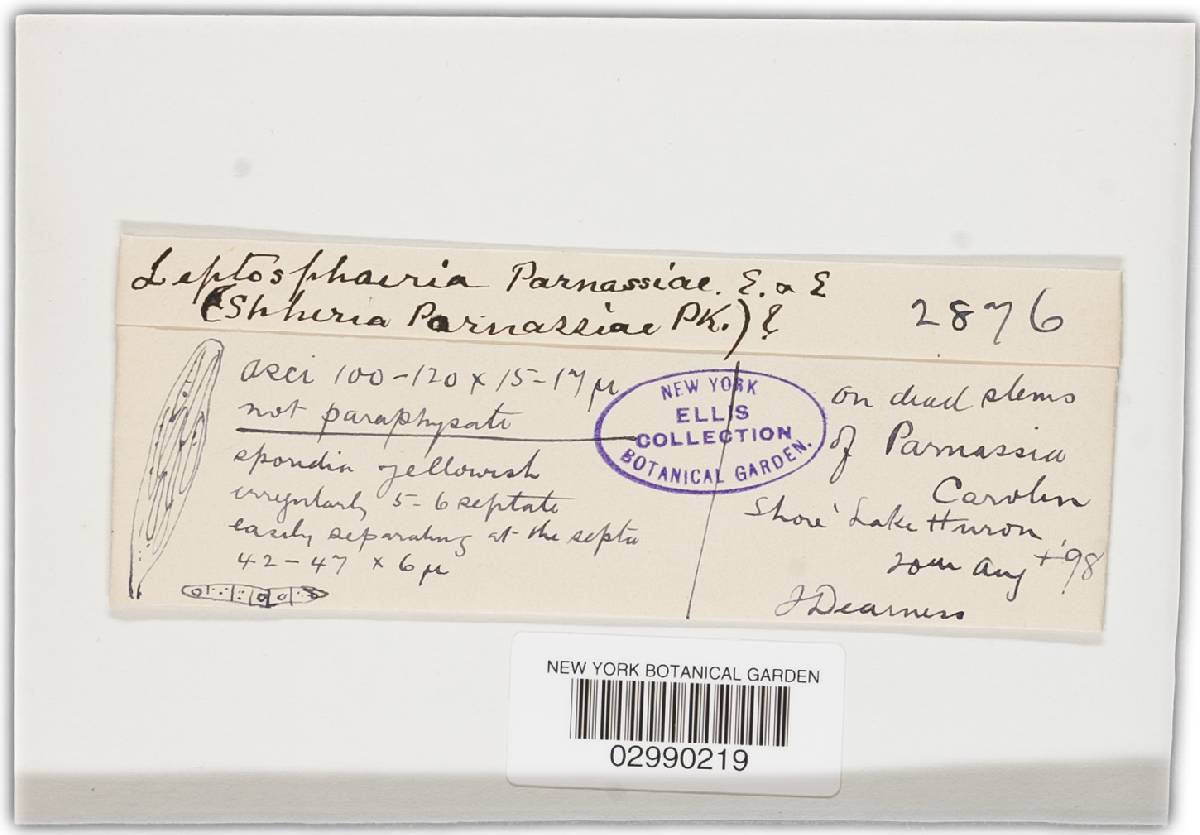 Leptosphaeria Parnassiae. E. & E
(Sphaeria Parnassiae PK.) ?
2876
asci 100-120 x 15-17 µ
not paraphysate
sporidia yellowish
irregularly 5-6 septate
easily separating at the septa
42-47 x 6 µ
NEW YORK
ELLIS
COLLECTION
BOTANICAL GARDEN.
on dead stems
of Parnassia
Carolin
Shore Lake Huron
Aug 98
J Dearness
NEW YORK BOTANICAL GARDEN
02990219